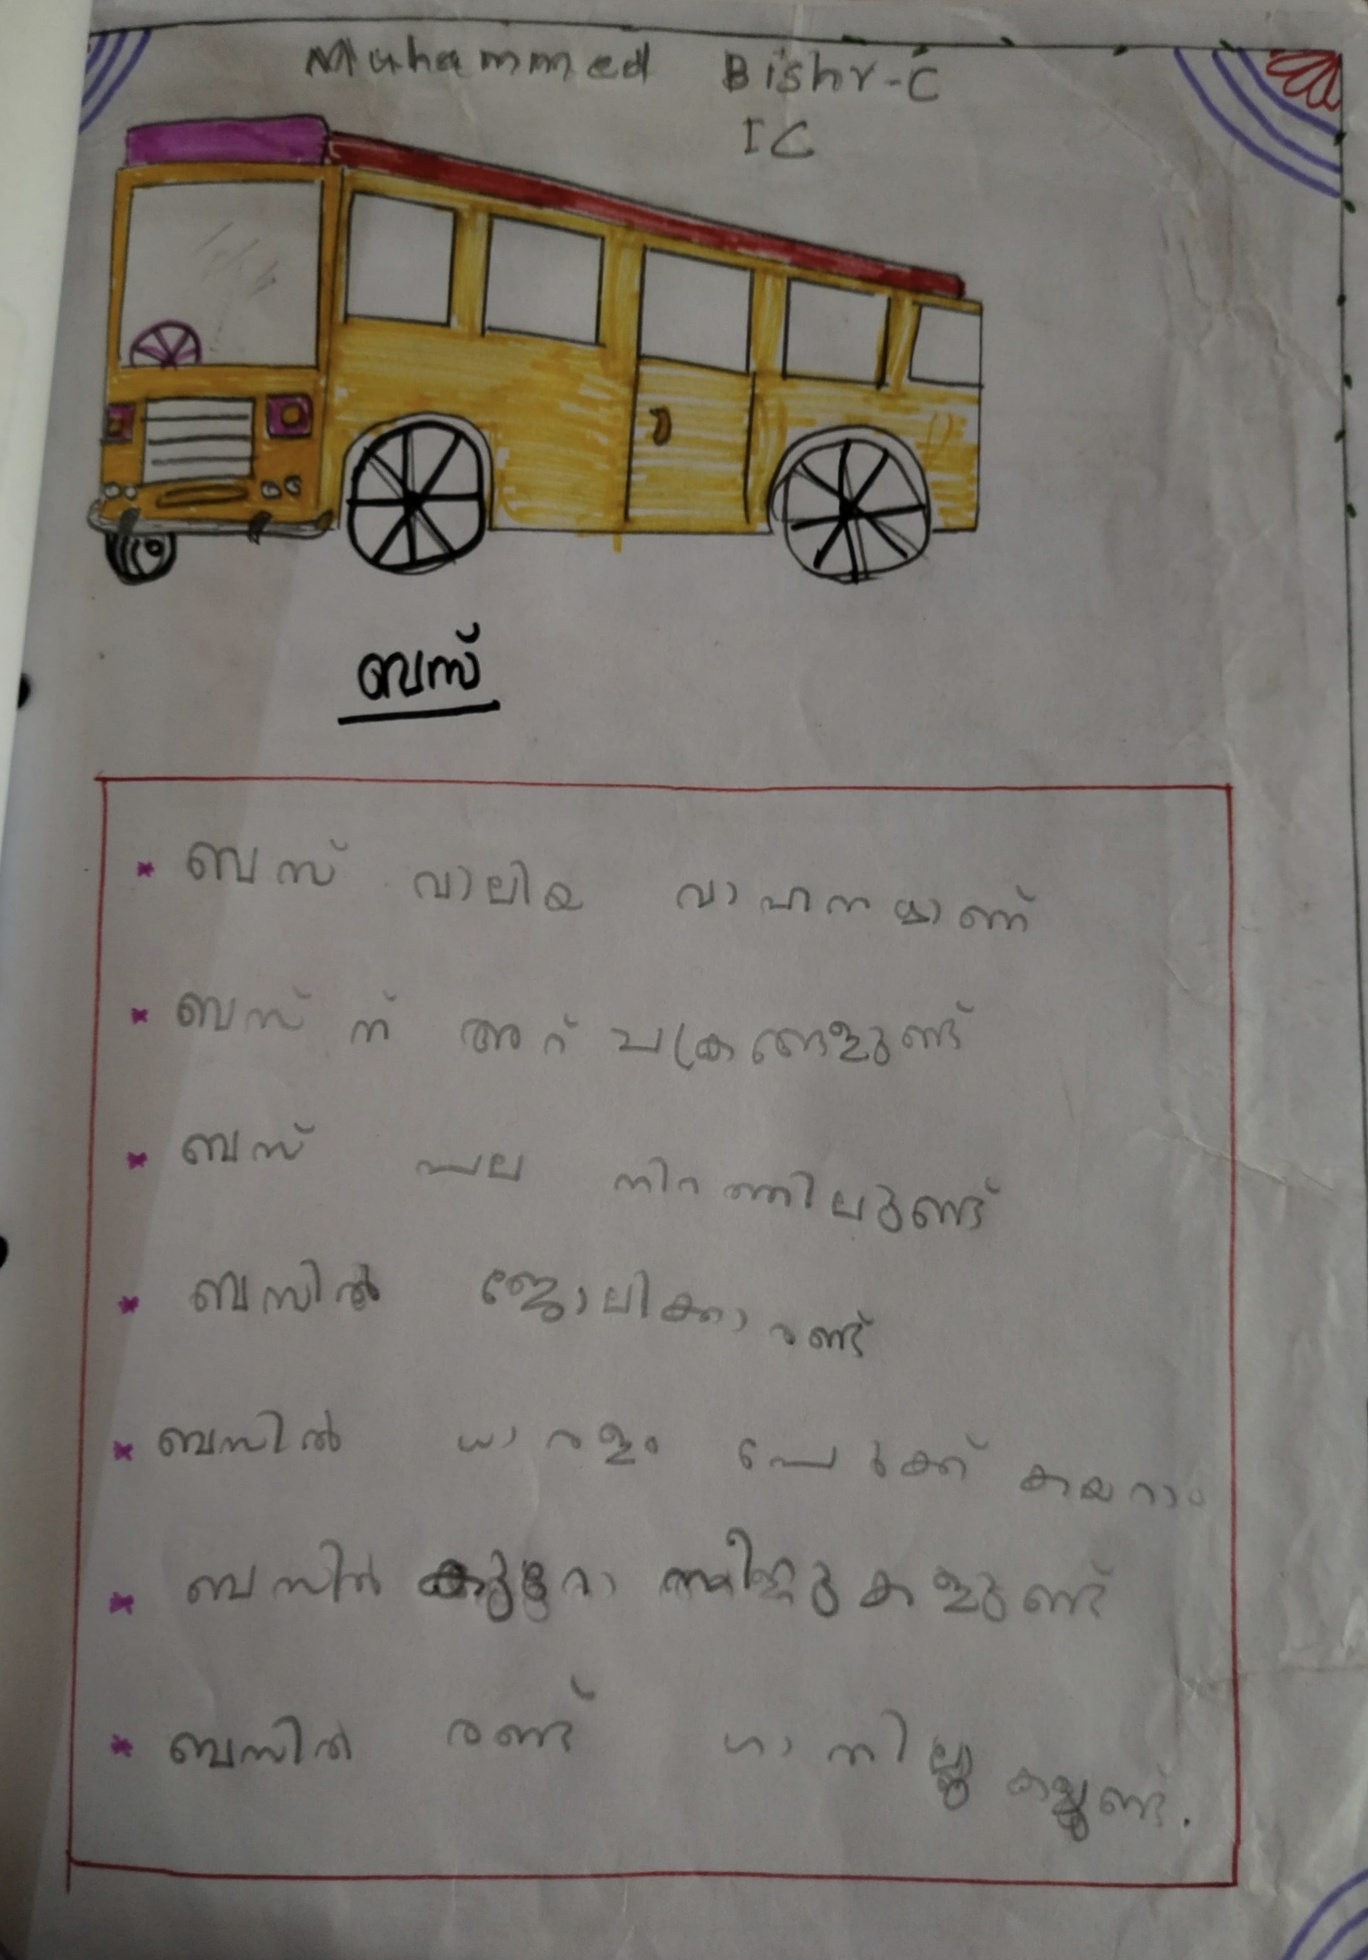 Muhammed Bishr-C
I C
ബസ്
* ബസ് വാലിയ വാഹനമാണ്
* ബസ് ന് അറ് ചക്രങ്ങളുണ്ട്
* ബസ് പല നിറത്തിലുണ്ട്
* ബസിൽ ജോലിക്കാരണ്ട്
* ബസിൽ ധാരളം പേർക്ക് കയറാം
* ബസിൽ സീറ്റുകളുണ്ട്
* ബസിൽ രണ്ട്